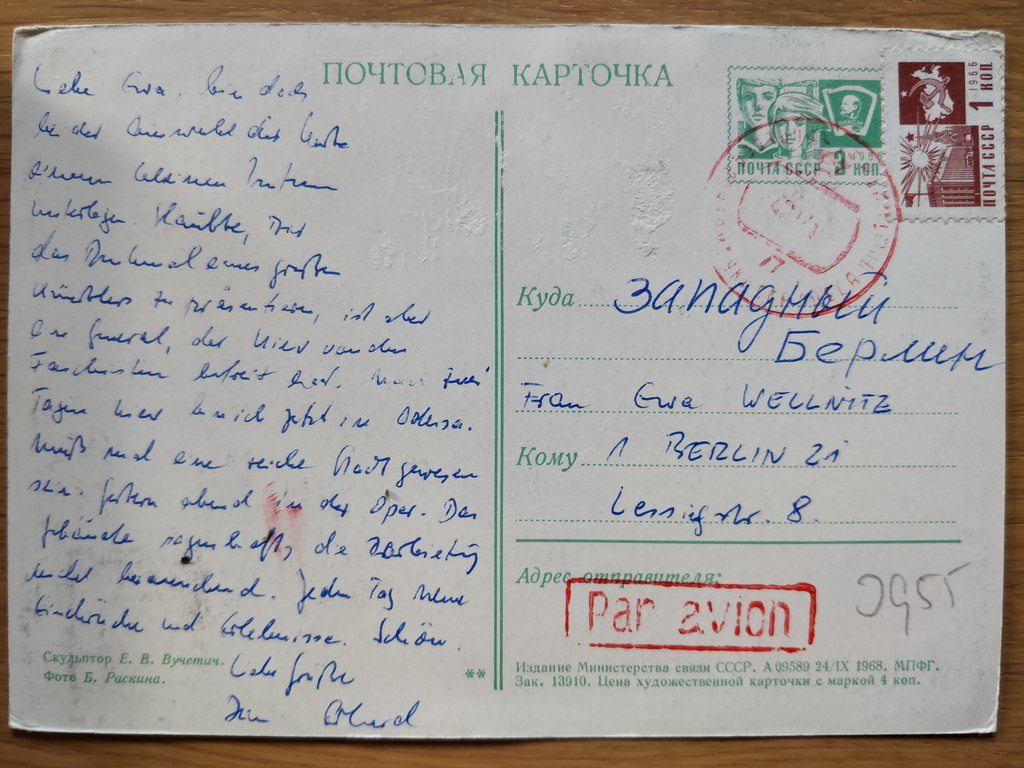 ПОЧТОВАЯ КАРТОЧКА
Liebe Ewa, bin doch
bei der Auswahl der Karte
einem kleinen Irrtum
unterlegen. Glaubte, Dir
das Denkmal eines großen
Künstlers zu präsentieren, ist aber
ein General, der Kiew von den
Faschisten befreit hat. Nach zwei
Tagen Kiew bin ich jetzt in Odessa.
Muß mal eine reiche Stadt gewesen
sein. Gestern abend in der Oper. Das
Gebäude sagenhaft, die Darbietung
nicht berauschend. Jeden Tag neue
Eindrücke und Erlebnisse. Schön.
Liebe Grüße
Dein
Скульптор Е. В. Вучетич.
Фото Б. Раскина.
**
ВЛКСМ
1966
ПОЧТА СССР 3 КОП.
ПОЧТА СССР 1 КОП.
1966
Куда ЗАПАДНЫЙ
Берлин
Frau Ewa WELLNITZ
Кому 1 BERLIN 21
Lessingstr. 8.
Адрес отправителя:
Par avion
Издание Министерства связи СССР. А 09589 24/IX 1968. МПФГ.
Зак. 13910. Цена художественной карточки с маркой 4 коп.